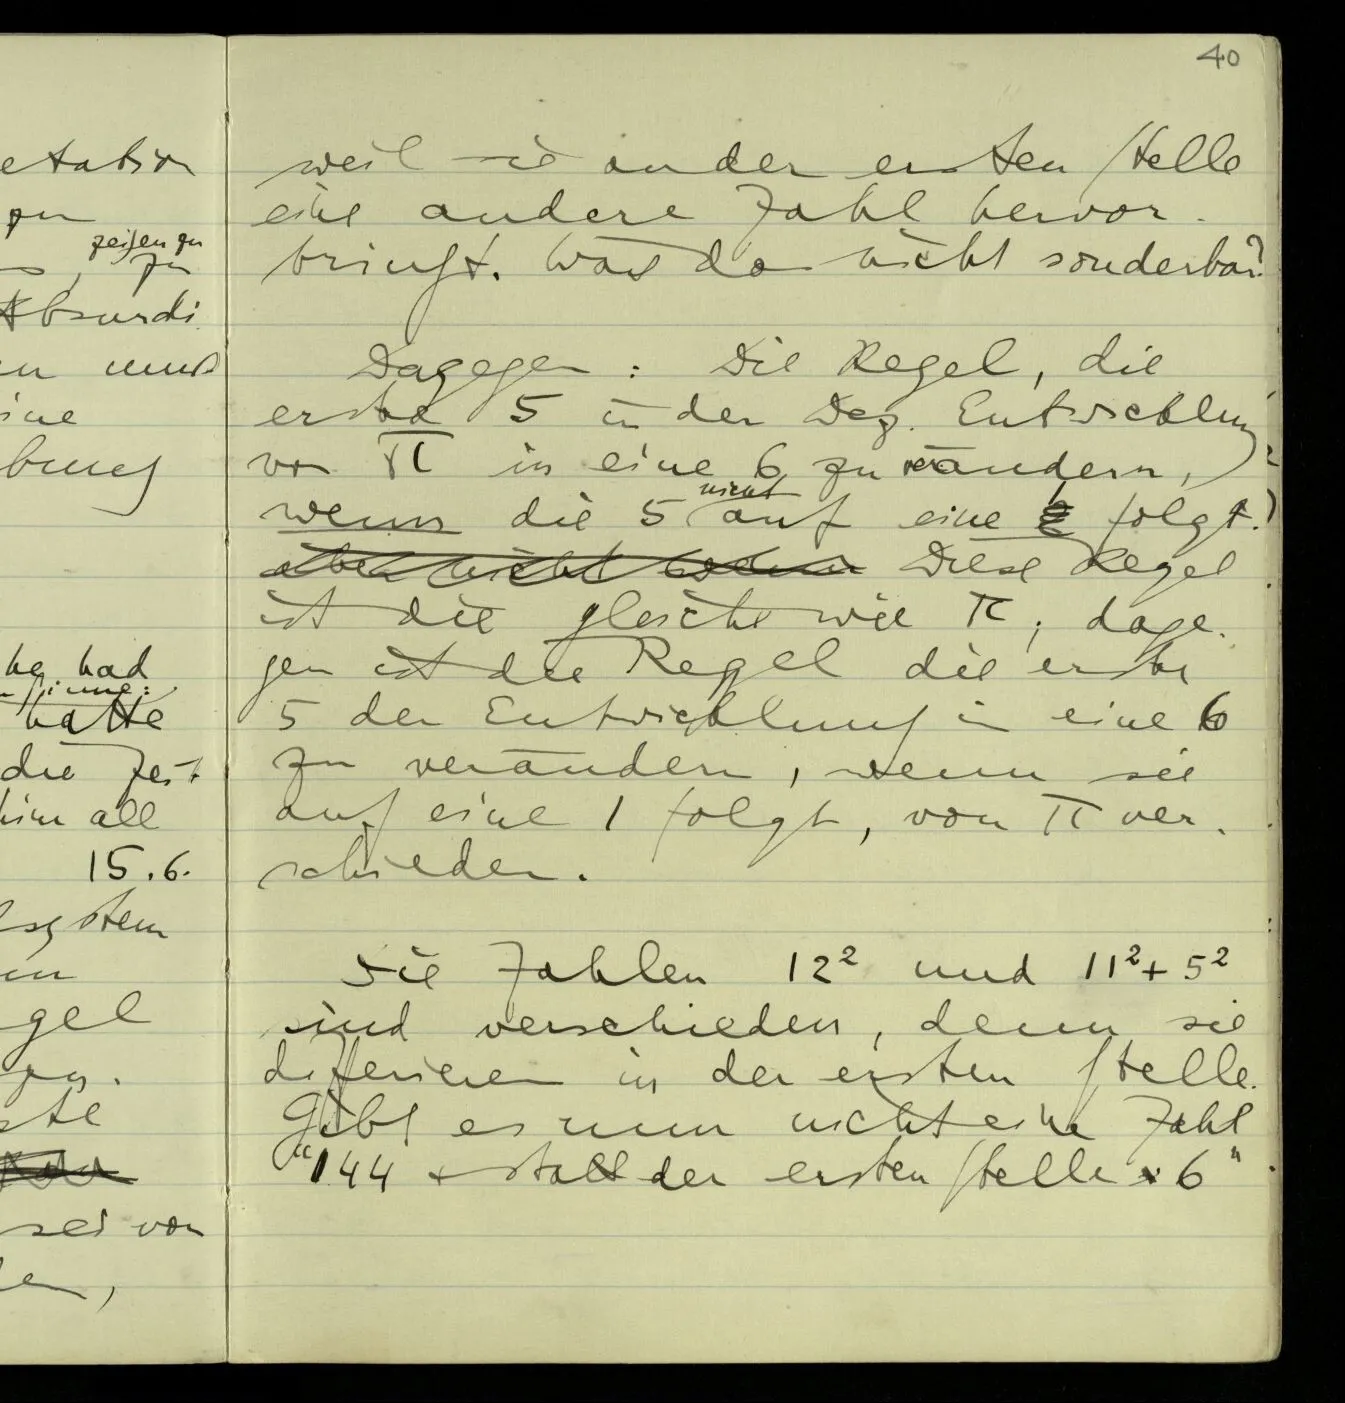 40
etation
zu
zeigen zu
, zu
Absurdi
en muß
ine
bung
he had
hatte
die Zeit
him all
15.6.
system
en
gel
ste
sei von
en,
weil sie an der ersten Stelle
eine andere Zahl hervor-
bringt. Wäre das nicht sonderbar?
Dagegen: Die Regel, die
erste 5 in der Dez. Entwicklung
von π in eine 6 zu verändern,
nicht
wenn die 5 auf eine 1 folgt.
aber nicht wenn Diese Regel
ist die gleiche wie π; dage-
gen ist die Regel die erste
5 der Entwicklung in eine 6
zu verändern, wenn sie
auf eine 1 folgt, von π ver-
schieden.
Die Zahlen 12² und 11²+5²
sind verschieden, denn sie
diferieren in der ersten Stelle.
Gibt es nun nicht eine Zahl
"144 + statt der ersten Stelle 6"